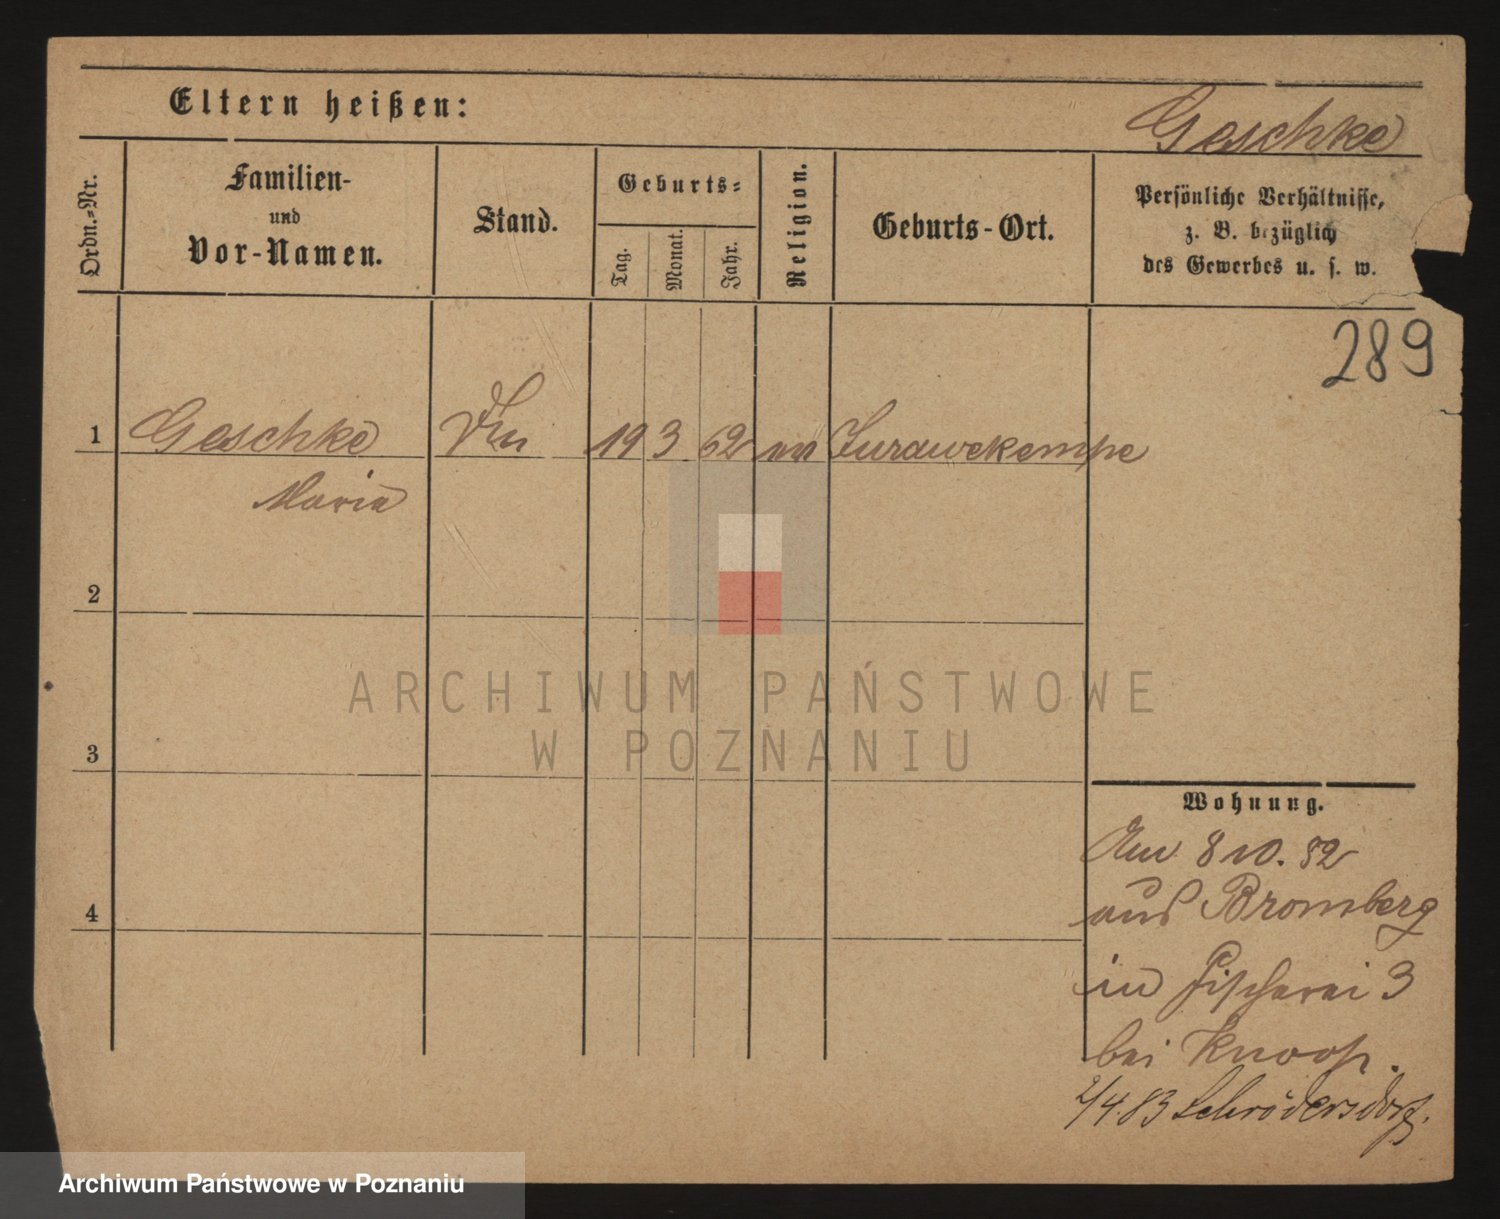 Eltern heißen:
Geschke
Ordn.-Nr.
Familien-
und
Vor-Namen.
Stand.
Geburts-
Tag.
Monat.
Jahr.
Religion.
Geburts-Ort.
Persönliche Verhältnisse,
z. B. bezüglich
des Gewerbes u. s. w.
289
1 Geschke 19 3 62 Jurawekempe
Maria
2
3
4
Wohnung.
Am 8 10. 82
aus Bromberg
in Fischerei 3
bei Knoop.
2/4.83 Schrödersdorf.
ARCHIWUM PAŃSTWOWE
W POZNANIU
Archiwum Państwowe w Poznaniu